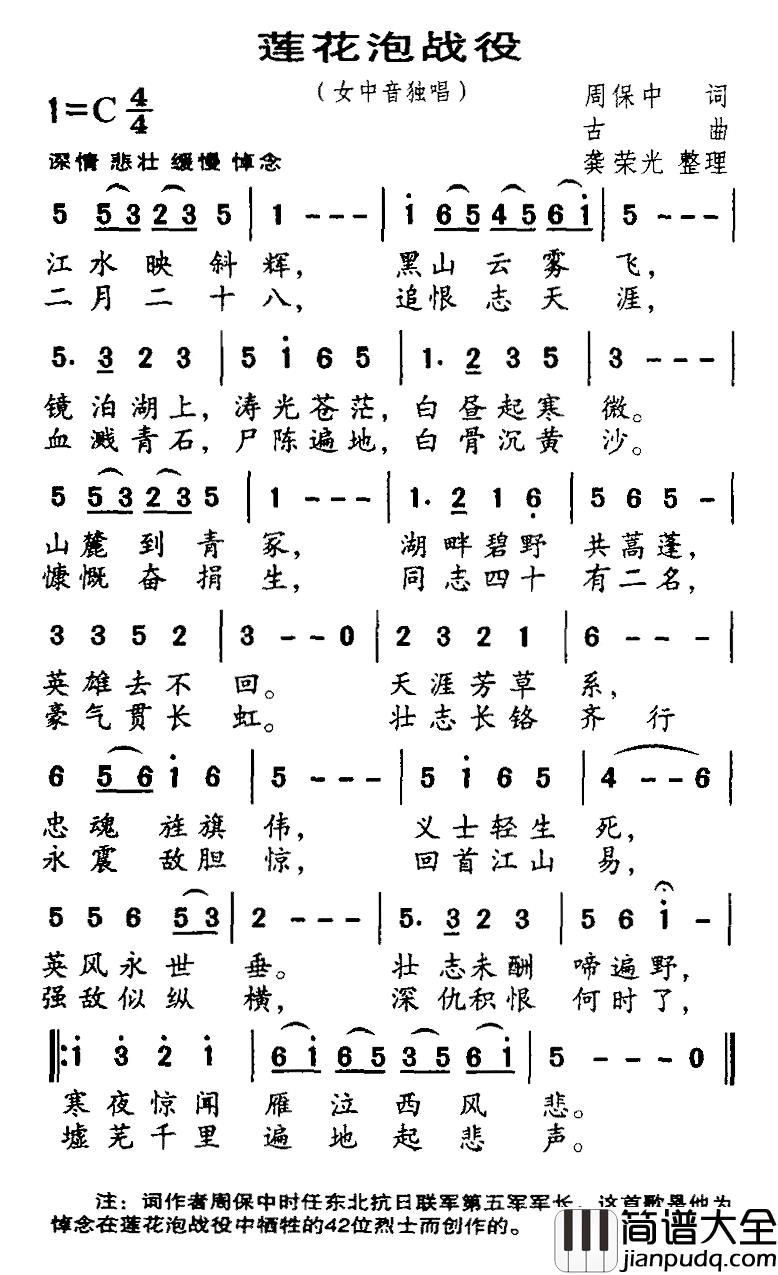 莲花泡战役
（女中音独唱）
1=C 4/4
周保中 词
古 曲
龚荣光 整理
深情 悲壮 缓慢 悼念
5 5 3 2 3 5 | 1 - - - | i 6 5 4 5 6 i | 5 - - - |
江水映斜辉， 黑山云雾飞，
二月二十八， 追恨志天涯，
5. 3 2 3 | 5 i 6 5 | 1. 2 3 5 | 3 - - - |
镜泊湖上，涛光苍茫，白昼起寒微。
血溅青石，尸陈遍地，白骨沉黄沙。
5 5 3 2 3 5 | 1 - - - | 1. 2 1 6 | 5 6 5 - |
山麓到青冢， 湖畔碧野共蒿蓬，
慷慨奋捐生， 同志四十有二名，
3 3 5 2 | 3 - - 0 | 2 3 2 1 | 6 - - - |
英雄去不回。 天涯芳草系，
豪气贯长虹。 壮志长铬齐行
6 5 6 i 6 | 5 - - - | 5 i 6 5 | 4 - - 6 |
忠魂旌旗伟， 义士轻生死，
永震敌胆惊， 回首江山易，
5 5 6 5 3 | 2 - - - | 5. 3 2 3 | 5 6 i - |
英风永世垂。 壮志未酬啼遍野，
强敌似纵横， 深仇积恨何时了，
‖: i 3 2 i | 6 i 6 5 3 5 6 i | 5 - - 0 :‖
寒夜惊闻雁泣西风悲。
墟芜千里遍地起悲声。
注：词作者周保中时任东北抗日联军第五军军长，这首歌是他为
悼念在莲花泡战役中牺牲的42位烈士而创作的。
简谱大全
jianpudq.com